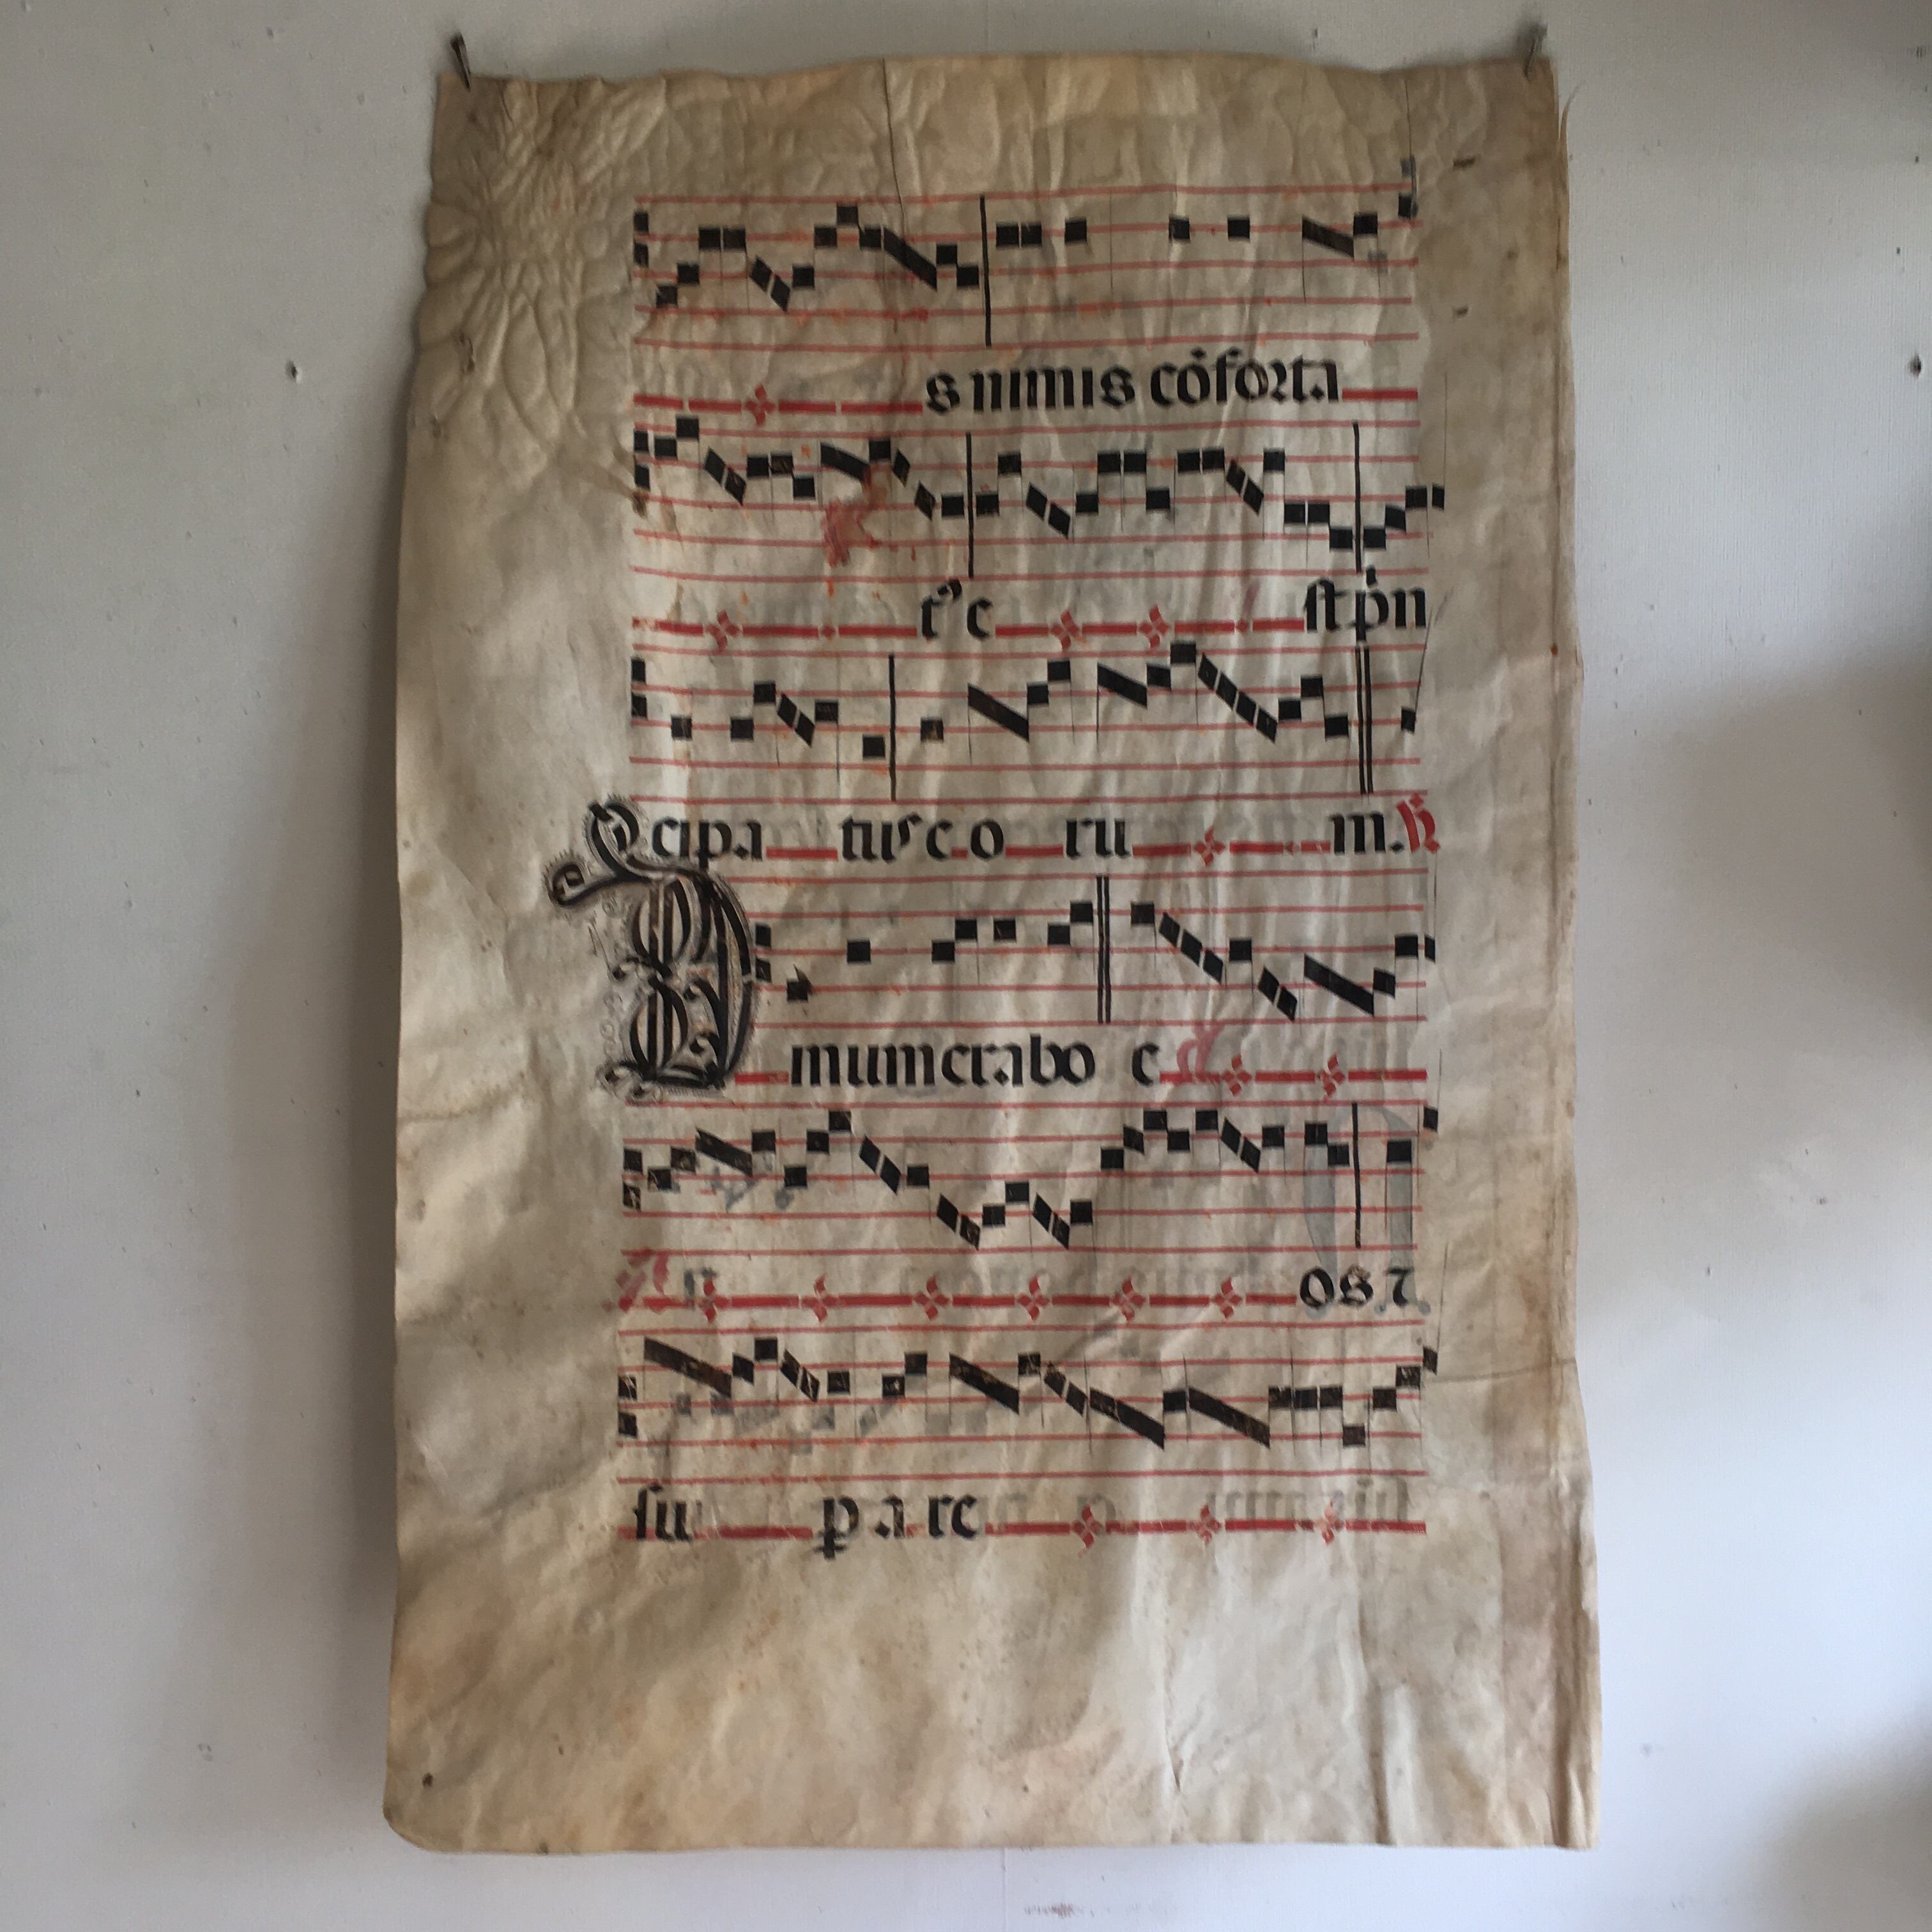 s nimis cȯforta
t⁹ e
st pṅ
cipa tus e o ru m. ꝟ
D mumerabo e
os. ⁊
su ꝑ a re